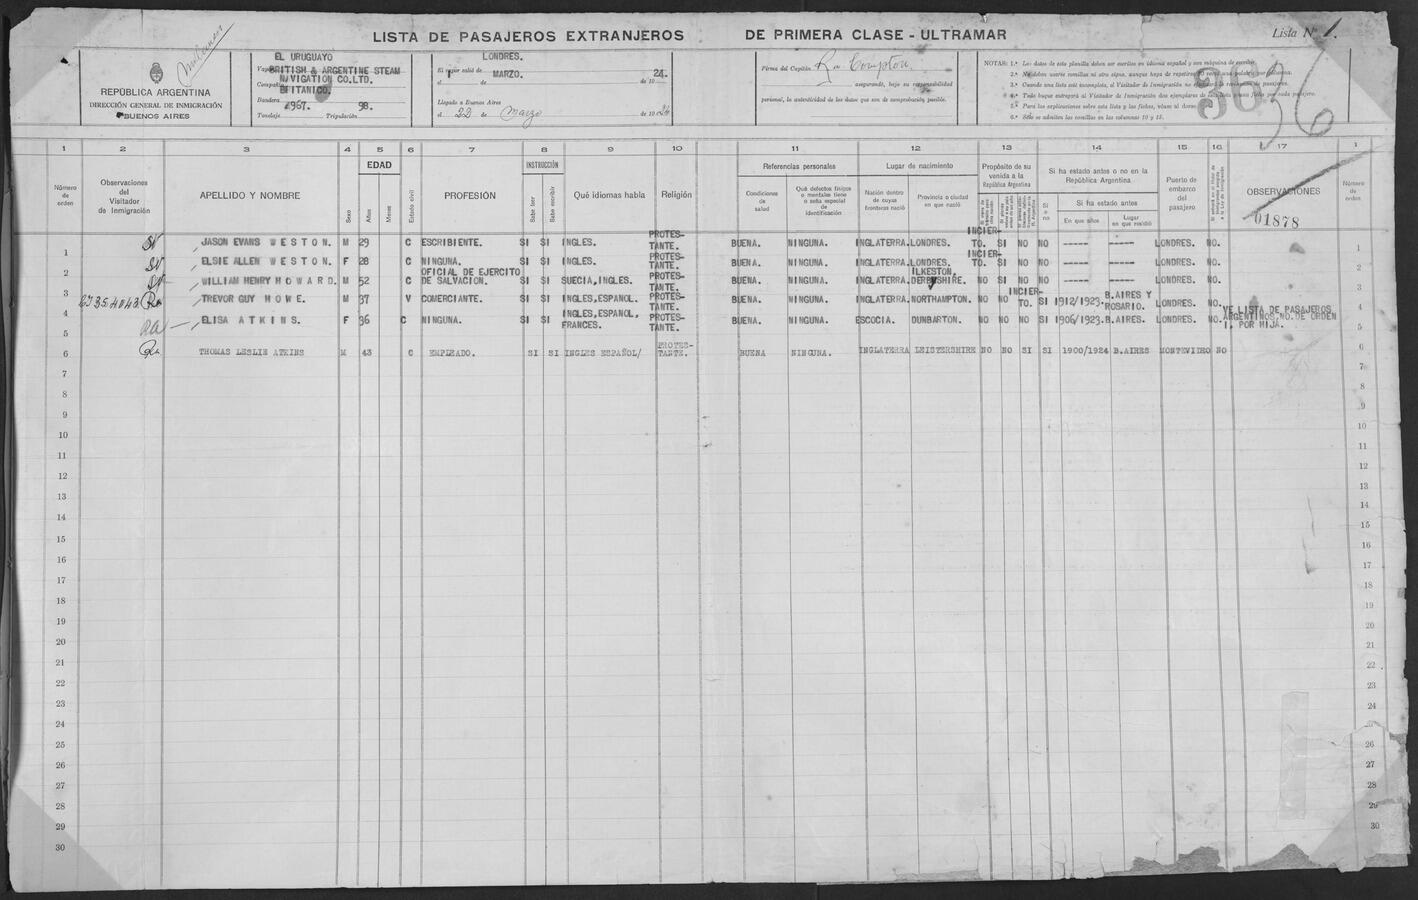 LISTA DE PASAJEROS EXTRANJEROS DE PRIMERA CLASE - ULTRAMAR
Lista Nº 1.
REPÚBLICA ARGENTINA
DIRECCIÓN GENERAL DE INMIGRACIÓN
BUENOS AIRES
EL URUGUAYO
BRITISH & ARGENTINE STEAM
NAVIGATION CO.LTD.
BRITANICO.
Bandera
2967. 98.
Tonelaje Tripulación
LONDRES.
El vapor salió de
el 1 de MARZO. de 19 24.
Llegado a Buenos Aires
el 22 de Marzo de 1924
Firma del Capitán Compton.
asegurando, bajo su responsabilidad
personal, la autenticidad de los datos que son de comprobación posible.
NOTAS: 1.ª Los datos de esta planilla deben ser escritos en idioma español y con máquina de escribir.
363
36
1 2 3 4 5 6 7 8 9 10 11 12 13 14 15 16 17 1
Número de orden
Observaciones del Visitador de Inmigración
APELLIDO Y NOMBRE
Sexo
EDAD
Años
Meses
Estado civil
PROFESIÓN
INSTRUCCIÓN
Sabe leer
Sabe escribir
Qué idiomas habla
Religión
Referencias personales
Condiciones de salud
Qué defectos físicos o mentales tiene o seña especial de identificación
Lugar de nacimiento
Nación dentro de cuyas fronteras nació
Provincia o ciudad en que nació
Propósito de su venida a la República Argentina
Si ha estado antes o no en la República Argentina
Si o no
Si ha estado antes
En que años
Lugar en que residió
Puerto de embarco del pasajero
OBSERVACIONES
01878
Número de orden
1 JASON EVANS WESTON. M 29 C ESCRIBIENTE. SI SI INGLES. PROTES-TANTE. BUENA. NINGUNA. INGLATERRA. LONDRES. INCIER-TO. SI NO NO ----- ----- LONDRES. NO. 1
2 ELSIE ALLEN WESTON. F 28 C NINGUNA. SI SI INGLES. PROTES-TANTE. BUENA. NINGUNA. INGLATERRA. LONDRES. INCIER-TO. SI NO NO ----- ----- LONDRES. NO. 2
3 WILLIAM HENRY HOWARD. M 52 C OFICIAL DE EJERCITO DE SALVACION. SI SI SUECIA, INGLES. PROTES-TANTE. BUENA. NINGUNA. INGLATERRA. ILKESTON. DERBYSHIRE. NO SI NO NO ----- ----- LONDRES. NO. 3
4 TREVOR GUY HOWE. M 37 V COMERCIANTE. SI SI INGLES, ESPANOL. PROTES-TANTE. BUENA. NINGUNA. INGLATERRA. NORTHAMPTON. NO NO INCIER-TO. SI 1912/1923. B.AIRES Y ROSARIO. LONDRES. NO. 4
5 ELISA ATKINS. F 36 C NINGUNA. SI SI INGLES, ESPANOL, FRANCES. PROTES-TANTE. BUENA. NINGUNA. ESCOCIA. DUNBARTON. NO NO NO SI 1906/1923. B.AIRES. LONDRES. NO. VE LISTA DE PASAJEROS ARGENTINOS, NO. DE ORDEN 1. POR HIJA. 5
6 THOMAS LESLIE ATKINS M 43 C EMPLEADO. SI SI INGLES ESPAÑOL/ PROTES-TANTE. BUENA NINGUNA. INGLATERRA LEISTERSHIRE NO NO SI SI 1900/1924 B.AIRES MONTEVIDEO NO 6
7 7
8 8
9 9
10 10
11 11
12 12
13 13
14 14
15 15
16 16
17 17
18 18
19 19
20 20
21 21
22 22
23 23
24 24
25 25
26 26
27 27
28 28
29 29
30 30